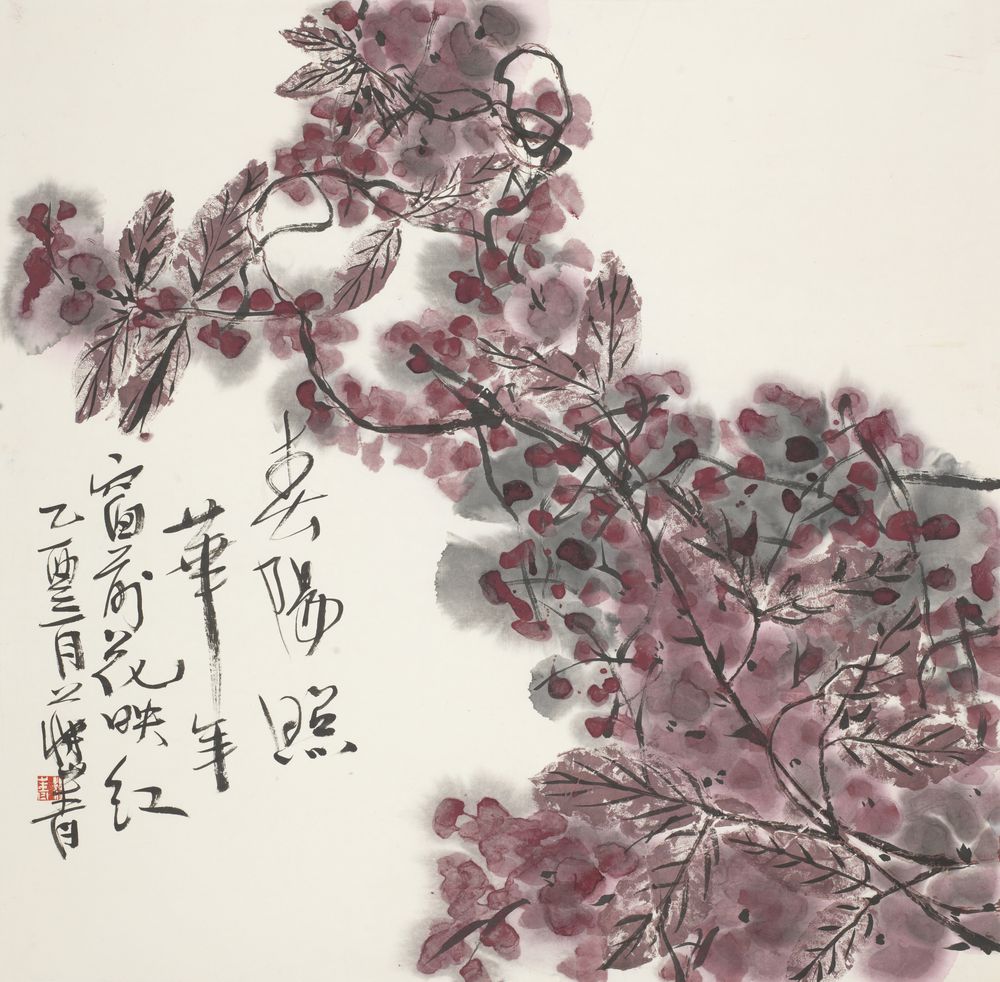 春陽照
華年
窗前花映红
乙酉三月